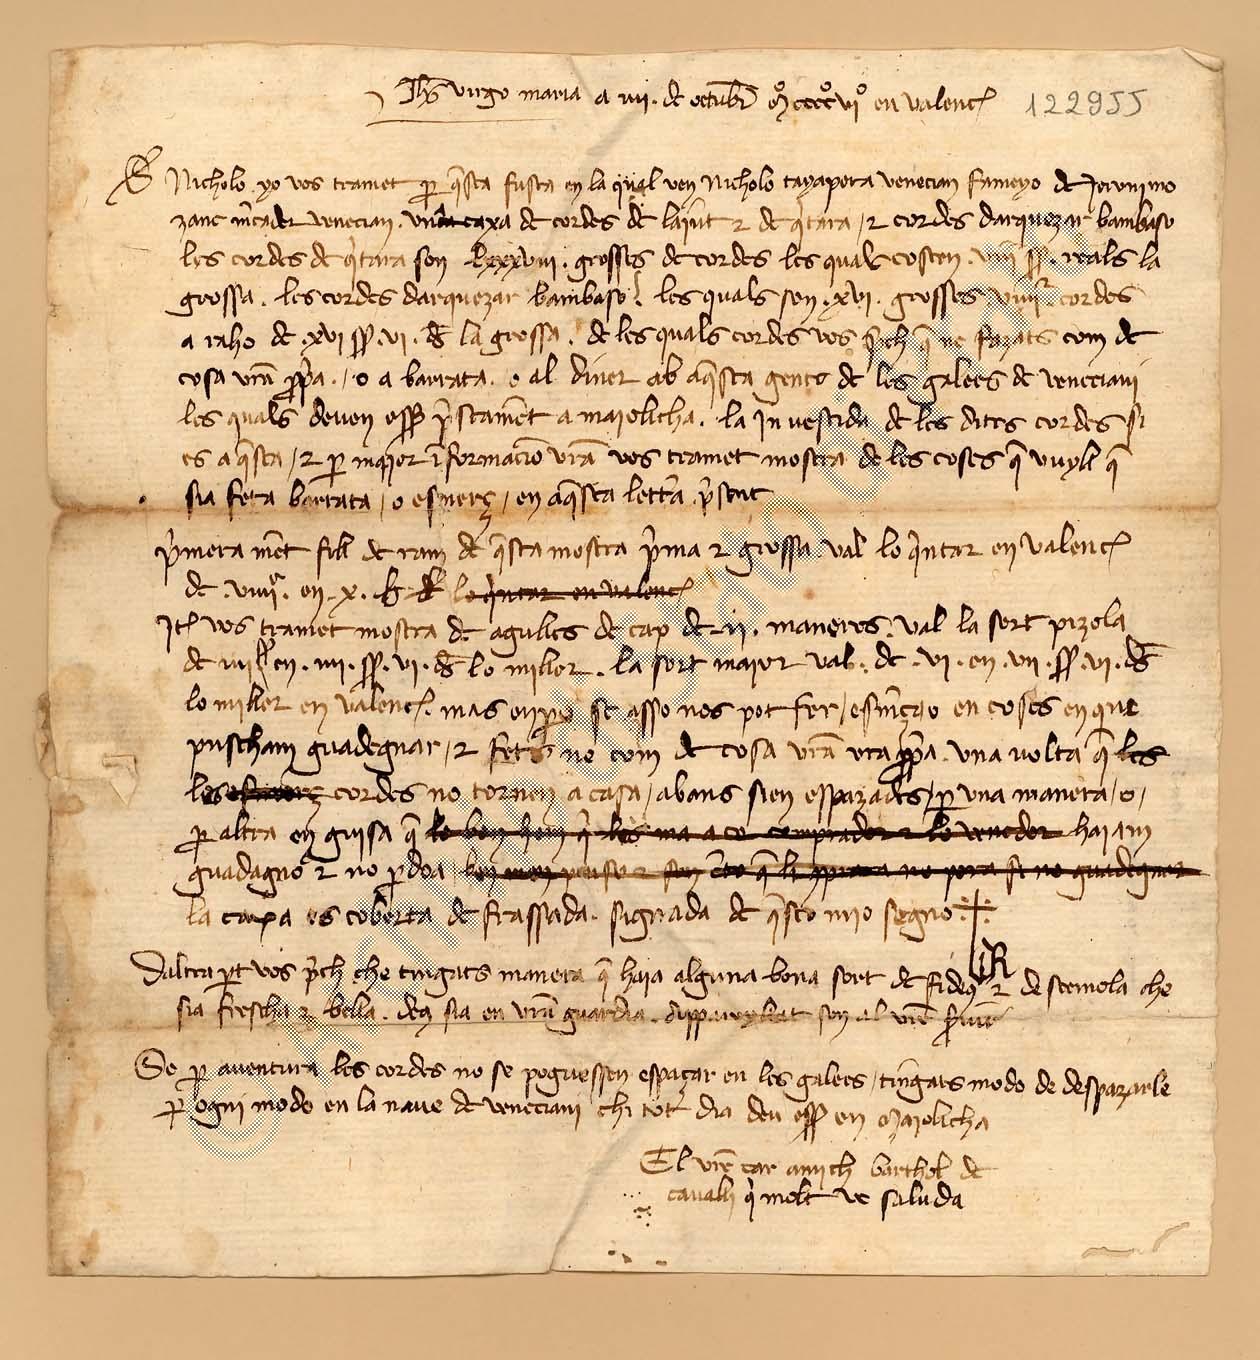 Jhs virgo maria a iiii. de octubr Mºccccºviº en valenc 122955
S Nicholo yo vos tramet p questa fusta en la qual ven Nicholo tayapera venecian fameyo de Jeronimo
zane mcader venecian. una caxa de cordes de laiut z de qtara / z cordes darquezar bambaso
les cordes de qtara son lxxxviii. grosses de cordes les quals costen. viii ss. reals la
grossa. les cordes darquezar bambaso. les quals son. xvi. grosses viiii cordes
a raho de .xvi ss. vi. ds la grossa. de les quals cordes vos pch q ne fazats com de
cosa vra ppa. / o a barrata. o al diner ab aqsta gente de les galees de veneciani
les quals deven ess pstament a maiolicha. la Investida de les dites cordes si
es aqsta / z p maior iformacio vra vos tramet mostra de les coses q vuyll q
sia feta barrata / o esmerç / en aqsta lettra psent
pmera ment fill de ram de qsta mostra pma z grossa val lo qntar en valenc
de .viiii. en .x. lo qntar en valenc
Itē vos tramet mostra de agulles de cap de .ii. maneres. val la sort pizola
de iiii en .iiii. ss. vi. ds lo miller. la sort maior val. de .vi. en .vii. ss. vi. ds
lo miller en valenc. mas empo se asso nos pot fer / esmçao en coses en que
puscham guadegnar / z fets ne com de cosa vra ppa. una volta q les
les esmerç cordes no tornen a casa / abans sien espazades / p una manera / o /
p altra en guisa q lo comprador z lo venedor haiam
guadagno z no pdoa no guadegnar
la caxa es coberta de frassada. signada de qsto mio segno
Daltra pt vos pch che tingats manera q haia alguna bona sort de fideus z de semola che
sia frescha z bella. deus sia en vra guardia. apparayllat son al vre
Se p aventura les cordes no se poguessen espaçar en les galees / tingats modo de despazarle
p ogni modo en la nave de veneciani chi tot dia deu ess en Maiolicha
El vre car amich barthol de
cavalli q molt ve saluda